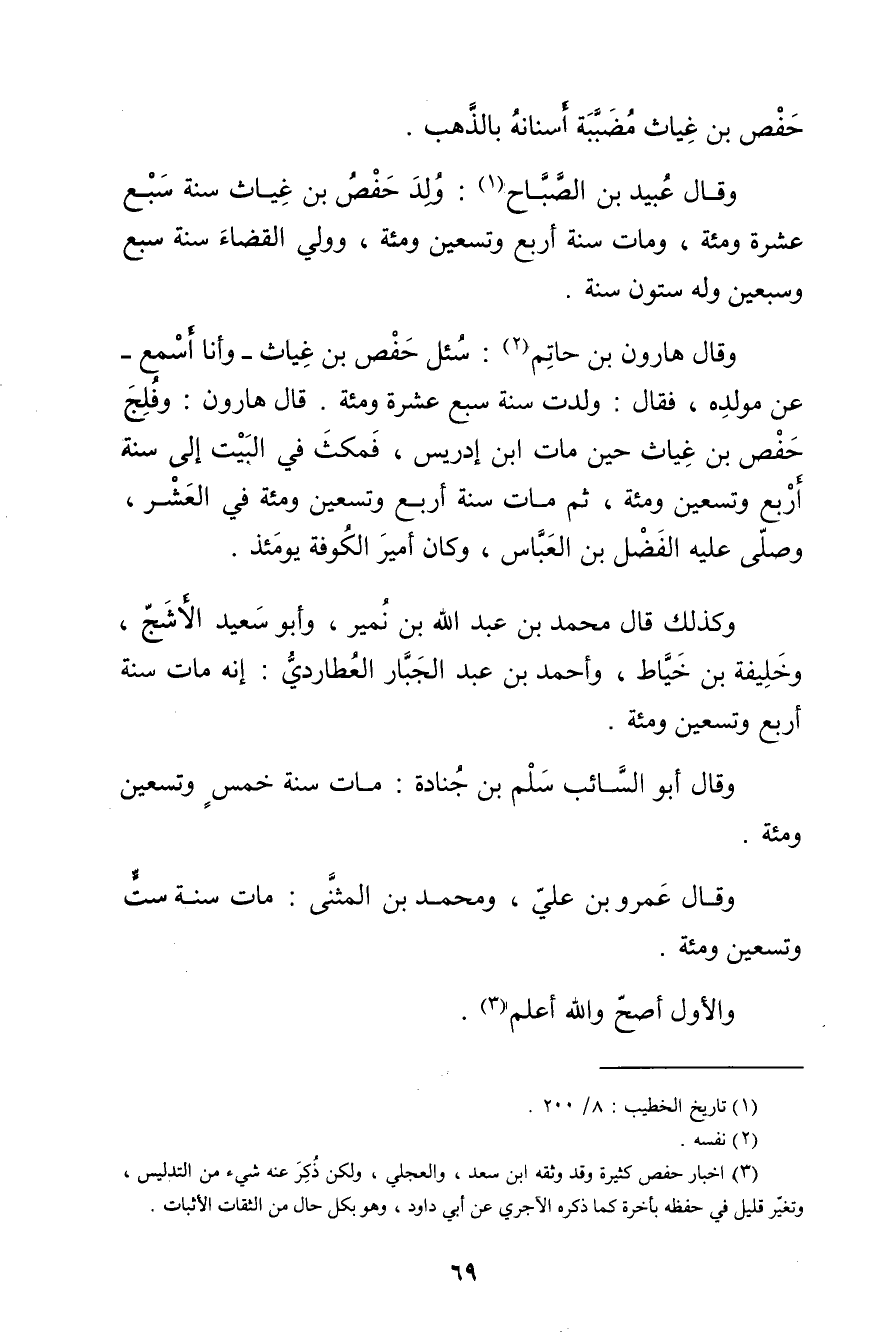 حَفْص بن غِياث مُضَبَّبَة أَسنانهُ بالذَّهب .
وقال عُبيد بن الصَّبَّاح(١) : وُلِدَ حَفْصُ بن غِياث سنة سَبْع
عشرة ومئة ، ومات سنة أربع وتسعين ومئة ، وولي القضاءَ سنة سبع
وسبعين وله ستون سنة .
وقال هارون بن حاتِم(٢) : سُئل حَفْص بن غِياث ـ وأنا أَسْمع ـ
عن مولدِه ، فقال : ولدت سنة سبع عشرة ومئة . قال هارون : وفُلِجَ
حَفْص بن غِياث حين مات ابن إدريس ، فَمكثَ في البَيْت إلى سنة
أَرْبع وتسعين ومئة ، ثم مات سنة أربع وتسعين ومئة في العَشْر ،
وصلّى عليه الفَضْل بن العَبَّاس ، وكان أميرَ الكُوفة يومَئذ .
وكذلك قال محمد بن عبد الله بن نُمير ، وأبو سَعيد الأَشَجّ ،
وخَلِيفة بن خَيَّاط ، وأحمد بن عبد الجَبَّار العُطارديُّ : إنه مات سنة
أربع وتسعين ومئة .
وقال أبو السَّائب سَلْم بن جُنادة : مات سنة خمسٍ وتسعين
ومئة .
وقال عَمرو بن عليّ ، ومحمد بن المثنَّى : مات سنة ستٍّ
وتسعين ومئة .
والأول أصحّ والله أعلم(٣) .
(١) تاريخ الخطيب : ٨/ ٢٠٠ .
(٢) نفسه .
(٣) اخبار حفص كثيرة وقد وثقه ابن سعد ، والعجلي ، ولكن ذُكِرَ عنه شيء من التدليس ،
وتغيّر قليل في حفظه بأخرة كما ذكره الآجري عن أبي داود ، وهو بكل حال من الثقات الأثبات .
٦٩